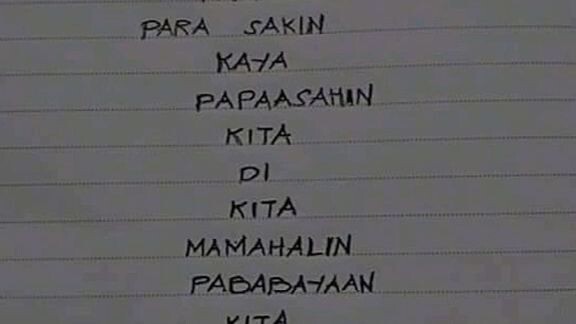 PARA SAKIN
KAYA
PAPAASAHIN
KITA
DI
KITA
MAMAHALIN
PABABAYAAN
KITA